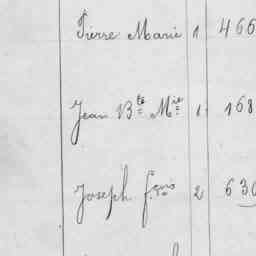 Pierre Marie 1 466
Jean Bte Mie 1 168
Joseph fcois 2 630